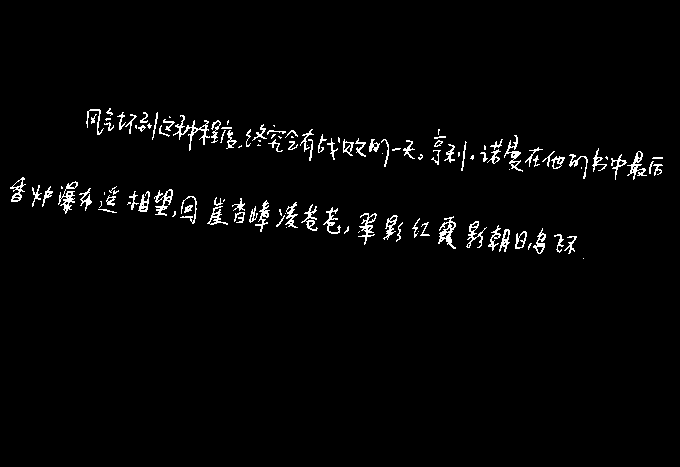 风气坏到这种程度,终究会有战败的一天。亨利·诺曼在他的书中最后
香炉瀑布遥相望,回崖沓嶂凌苍苍,翠影红霞影朝日,鸟飞不